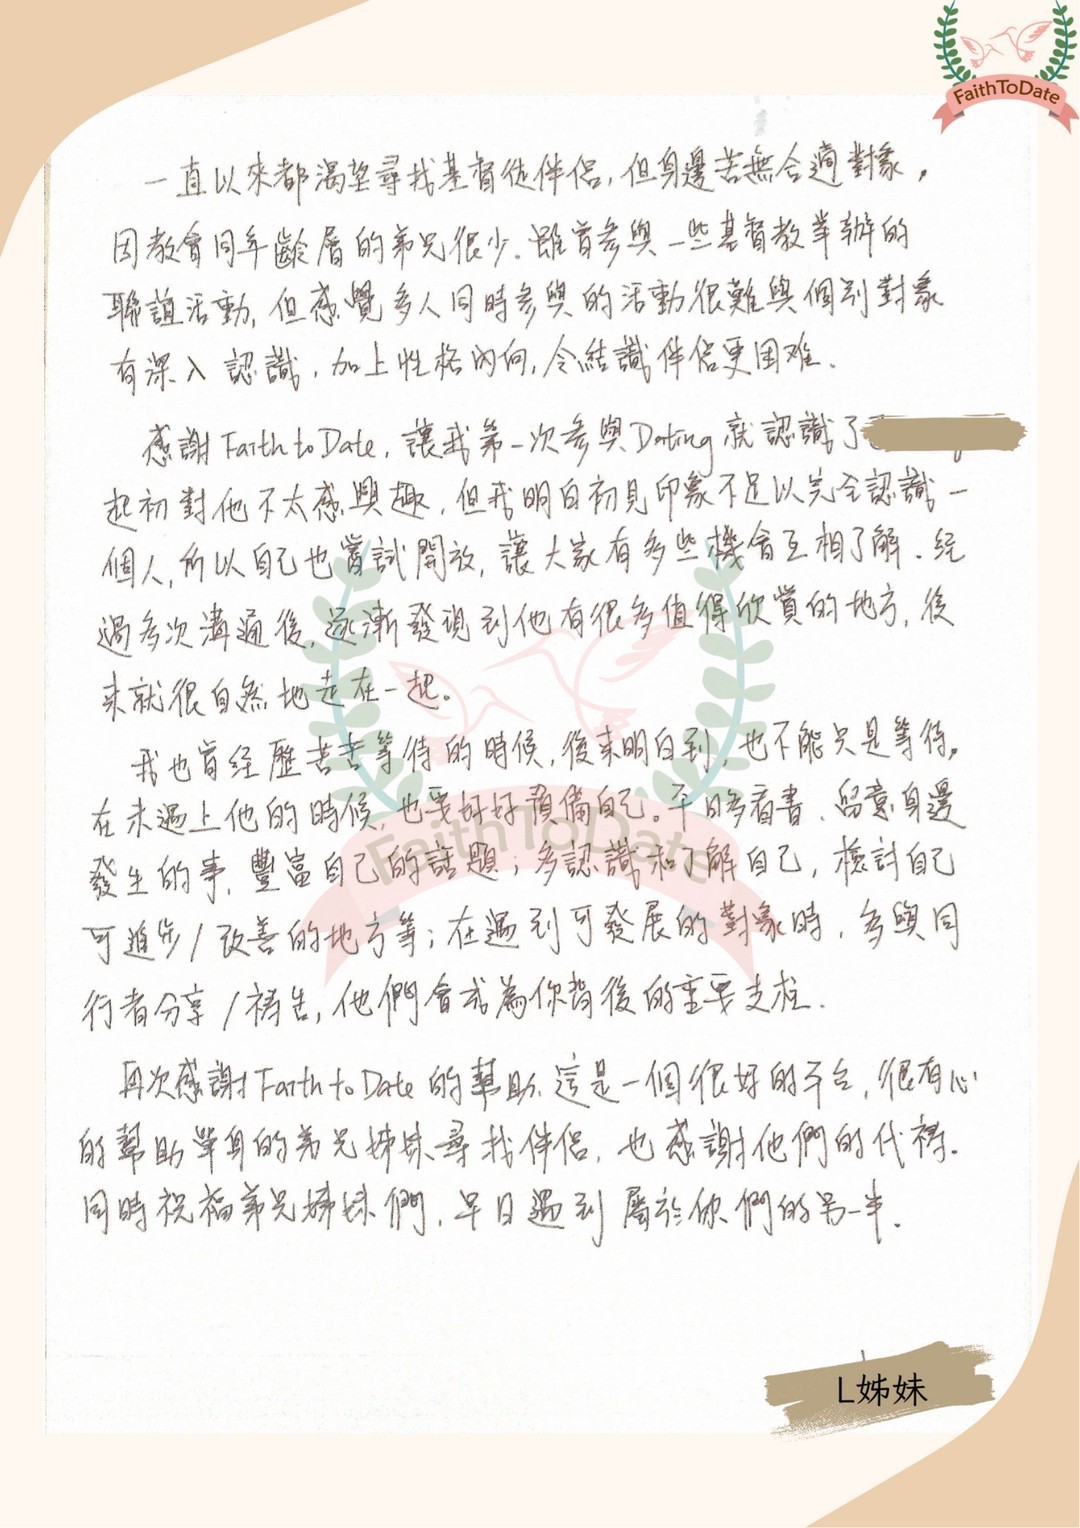 FaithToDate
一直以來都渴望尋找基督徒伴侶,但身邊苦無合適對象,
因教會同年齡層的弟兄很少.雖曾參與一些基督教舉辦的
聯誼活動,但感覺多人同時參與的活動很難與個別對象
有深入認識,加上性格內向,令結識伴侶更困难.
感謝Faith to Date,讓我第一次參與Dating就認識了
起初對他不太感興趣,但我明白初見印象不足以完全認識一
個人,所以自己也嘗試開放,讓大家有多些機會互相了解.經
過多次溝通後,逐漸發現到他有很多值得欣賞的地方,後
來就很自然地走在一起。
我也曾經歷苦苦等待的時候,後來明白到,也不能只是等待。
在未遇上他的時候,也要好好預備自己。平日多看書、留意身邊
發生的事,豐富自己的話題;多認識和了解自己,檢討自己
可進步/改善的地方等;在遇到可發展的對象時,多與同
行者分享/禱告,他們會成為你背後的重要支柱.
再次感謝Faith to Date的幫助.這是一個很好的平台,很有心
的幫助單身的弟兄姊妹尋找伴侶,也感謝他們的代禱.
同時祝福弟兄姊妹們,早日遇到屬於你們的另一半.
FaithToDate
L姊妹